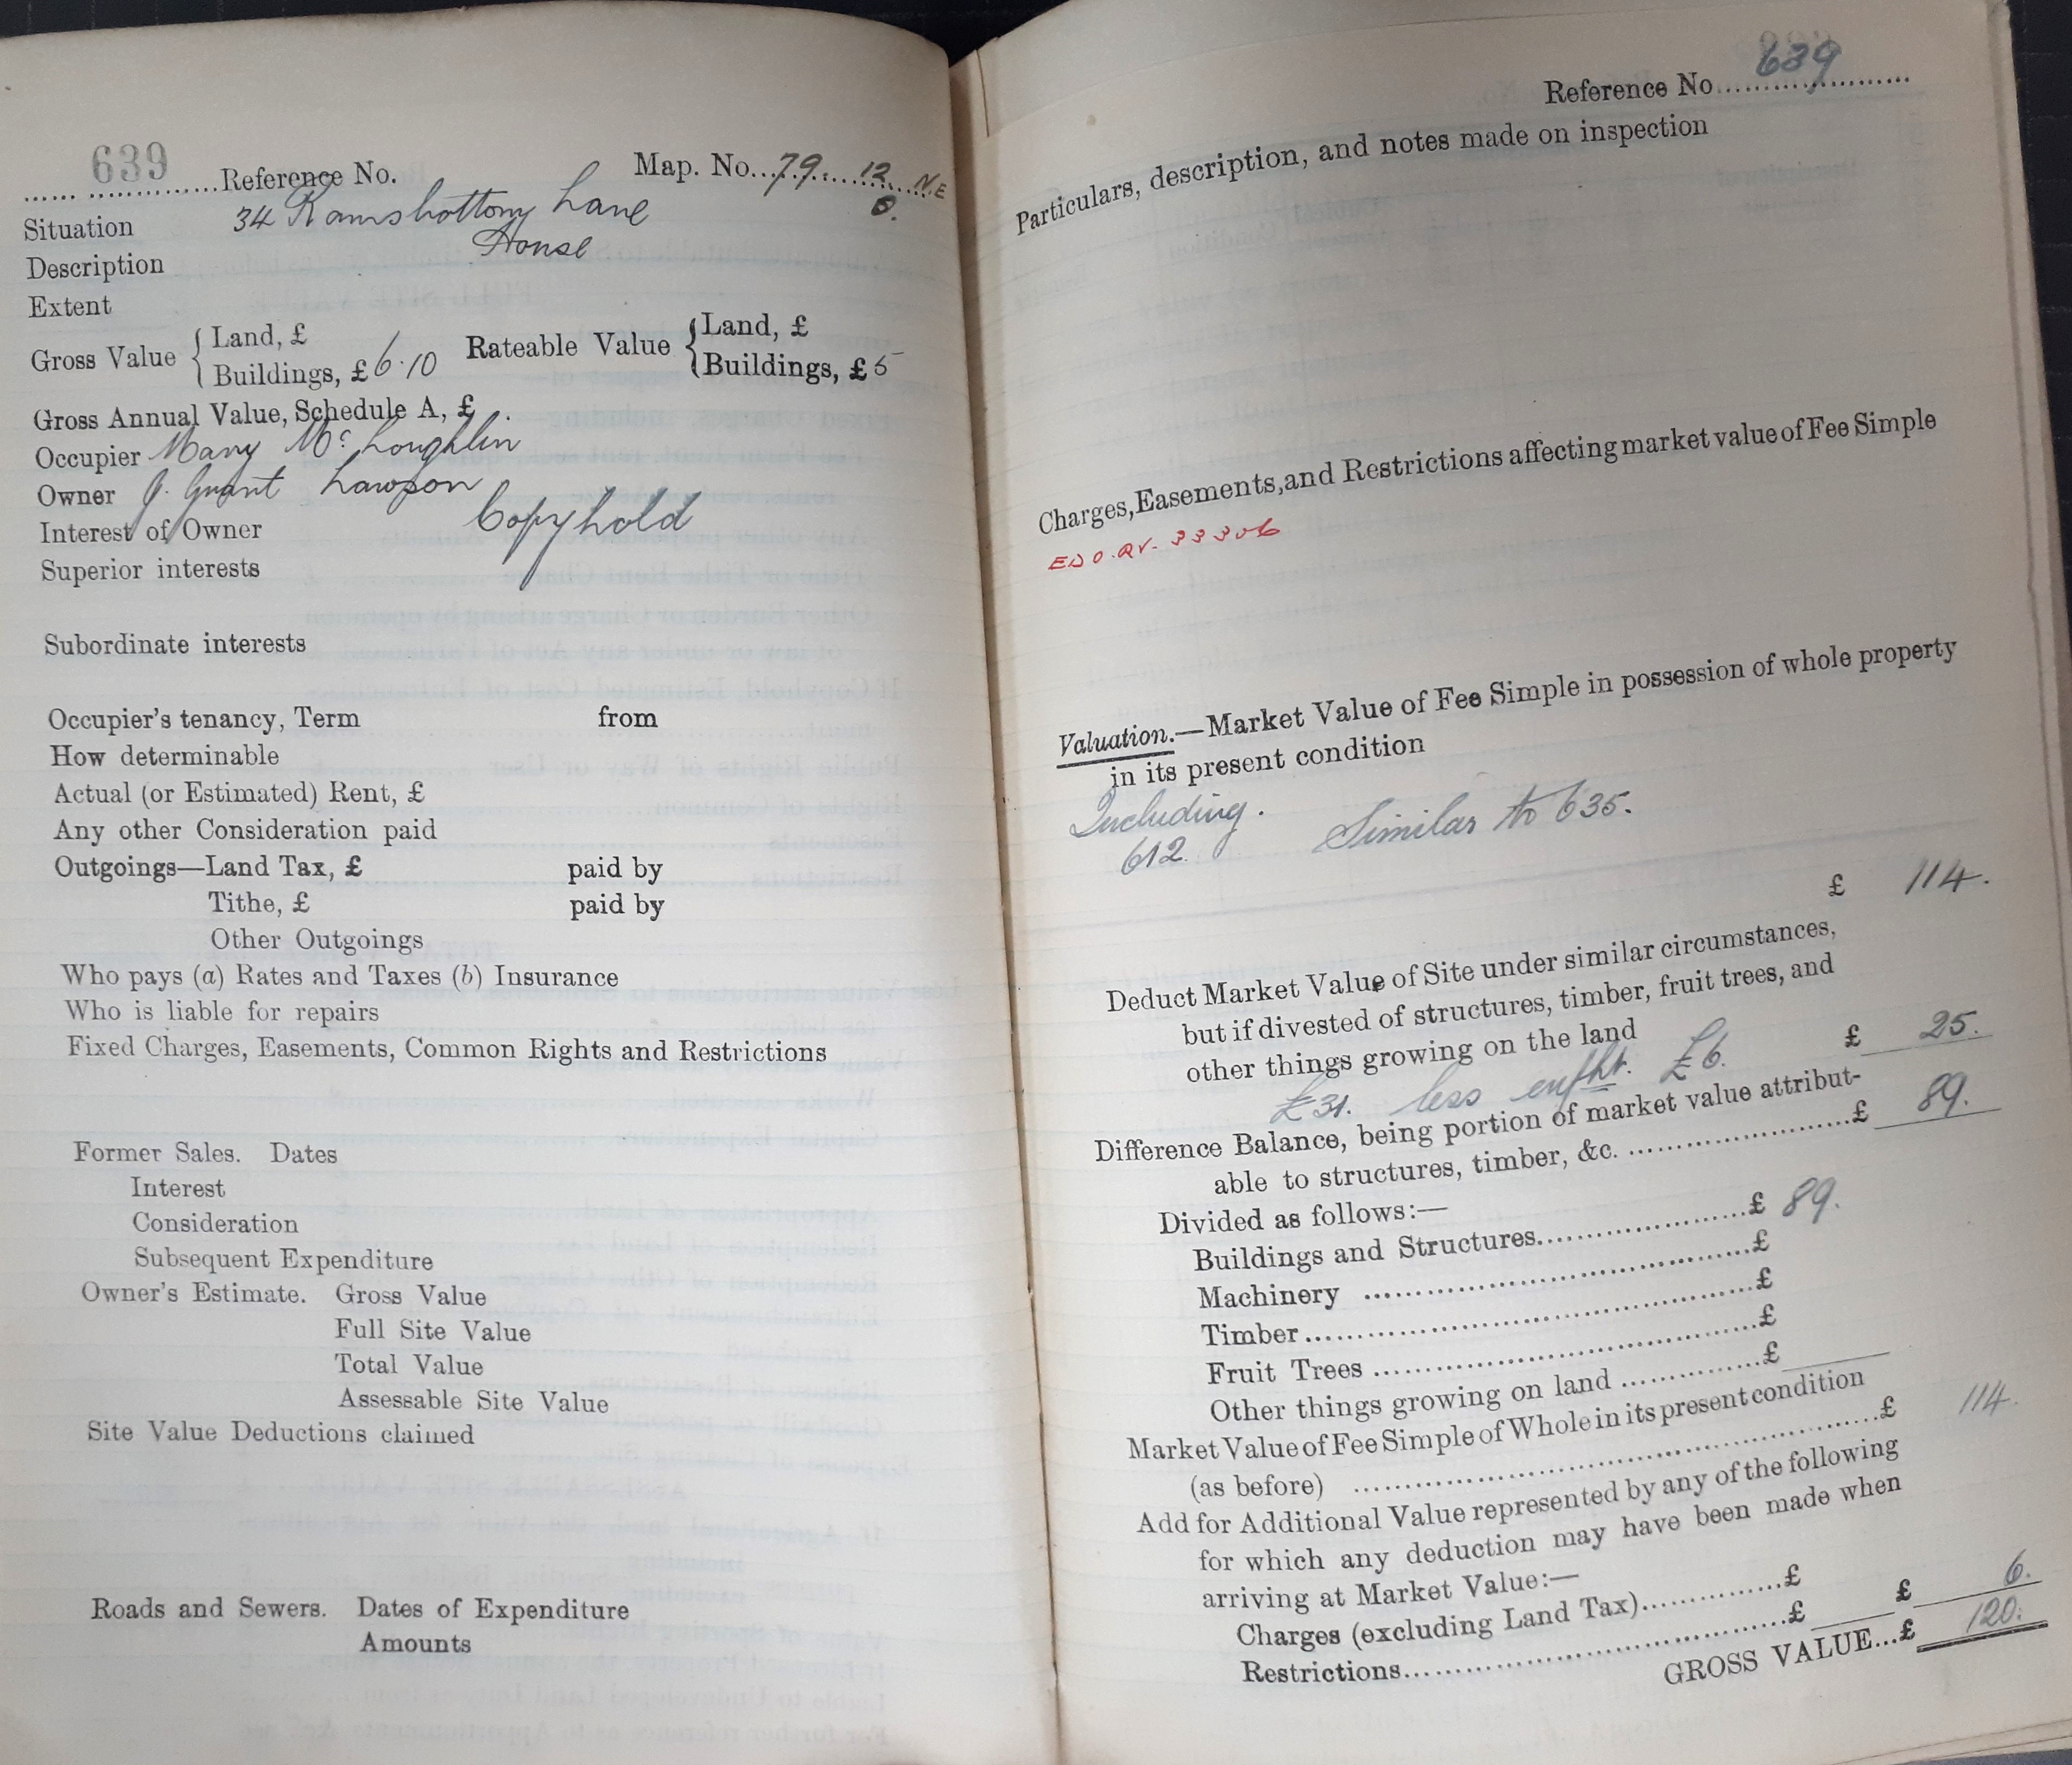 639
Reference No. Map. No. 79. 12 N.E
Situation 34 Ramsbottom Lane
Description House
Extent
Gross Value { Land, £
Buildings, £ 6.10
Rateable Value { Land, £
Buildings, £ 5
Gross Annual Value, Schedule A, £
Occupier Mary McLoughlin
Owner J. Grant Lawson
Interest of Owner Copyhold
Superior interests
Subordinate interests
Occupier's tenancy, Term from
How determinable
Actual (or Estimated) Rent, £
Any other Consideration paid
Outgoings—Land Tax, £ paid by
Tithe, £ paid by
Other Outgoings
Who pays (a) Rates and Taxes (b) Insurance
Who is liable for repairs
Fixed Charges, Easements, Common Rights and Restrictions
Former Sales. Dates
Interest
Consideration
Subsequent Expenditure
Owner's Estimate. Gross Value
Full Site Value
Total Value
Assessable Site Value
Site Value Deductions claimed
Roads and Sewers. Dates of Expenditure
Amounts
Reference No. 639
Particulars, description, and notes made on inspection
Charges, Easements, and Restrictions affecting market value of Fee Simple
33306
Valuation.—Market Value of Fee Simple in possession of whole property
in its present condition
Including. Similar to 635.
612.
£ 114.
Deduct Market Value of Site under similar circumstances,
but if divested of structures, timber, fruit trees, and
other things growing on the land £ 25.
£31. less enfht. £6.
Difference Balance, being portion of market value attribut-
able to structures, timber, &c. £ 89.
Divided as follows:—
Buildings and Structures £ 89.
Machinery £
Timber £
Fruit Trees £
Other things growing on land £
Market Value of Fee Simple of Whole in its present condition
(as before) £ 114.
Add for Additional Value represented by any of the following
for which any deduction may have been made when
arriving at Market Value:—
Charges (excluding Land Tax) £
Restrictions £ £ 6.
GROSS VALUE...£ 120.